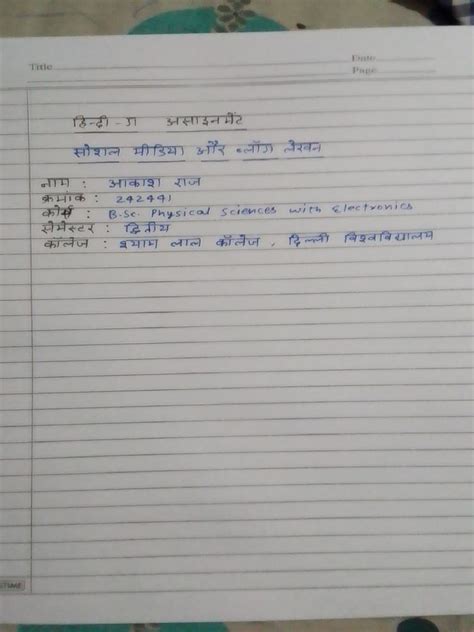 Title
Date
Page
हिन्दी - ग असाइनमेंट
सोशल मीडिया और ब्लॉग लेखन
नाम : आकाश राज
क्रमांक : 242441
कोर्स : B.Sc. Physical Sciences with Electronics
सेमेस्टर : द्वितीय
कॉलेज : श्याम लाल कॉलेज , दिल्ली विश्वविद्यालय